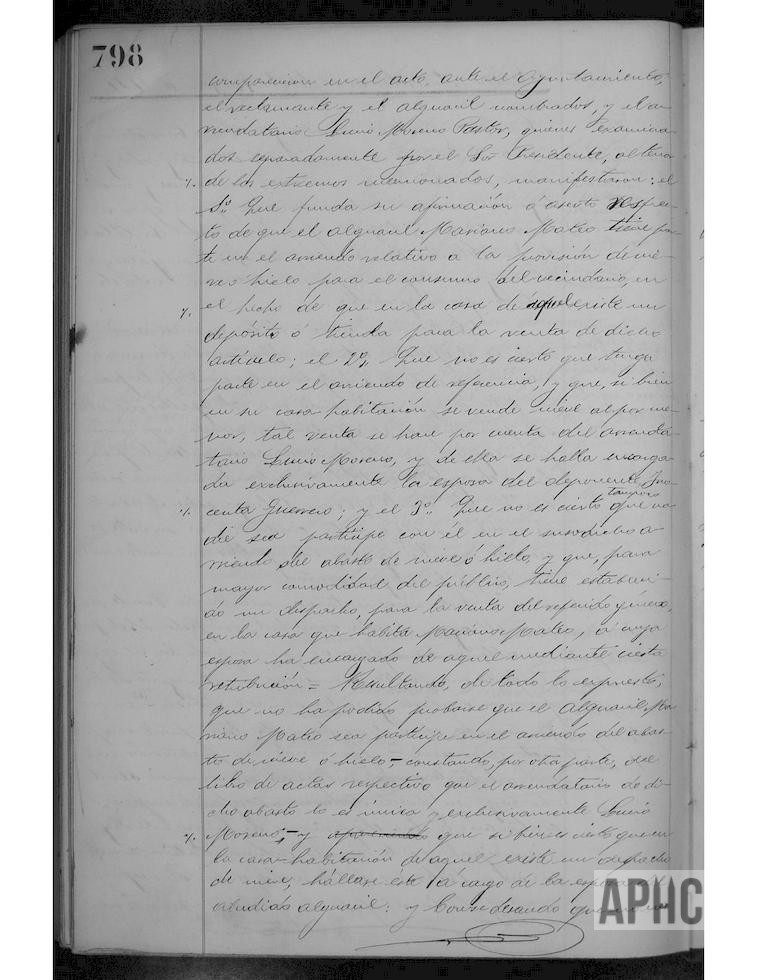 798
comparecieron en el acto, ante el Ayuntamiento,
el reclamante y el alguacil nombrados, y el a-
rrendatario Lucio Moreno Pastor, quienes examina-
dos separadamente por el Sor Presidente, al tenor
%. de los estremos mencionados, manifestaron: el
1º. Que funda su afirmación ó aserto respec-
to de que el alguacil Mariano Mateo tiene par-
te en el arriendo relativo a la provisión de nie-
ve ó hielo para el consumo del vecindario, en
%. el hecho de que en la casa de aquel existe un
depósito ó tienda para la venta de dicho
artículo; el 2º, Que no es cierto que tenga
parte en el arriendo de referencia, y que, si bien
en su casa-habitación se vende nieve al por me-
nor, tal venta se hace por cuenta del arrenda-
tario Lucio Moreno, y de ella se halla encarga-
da exclusivamente la esposa del deponente, Ino-
%. centa Guerrero; y el 3º. Que no es cierto tampoco que na-
die sea partícipe con él en el susodicho a-
rriendo del abasto de nieve ó hielo, y que, para
mayor comodidad del público, tiene estableci-
do un despacho, para la venta del referido género,
en la casa que habita Mariano Mateo, á cuya
esposa ha encargado de aquel mediante cierta
retribución = Resultando, de todo lo expuesto,
que no ha podido probarse que el Alguacil Ma-
riano Mateo sea partícipe en el arriendo del abas-
to de nieve ó hielo, - constando, por otra parte, del
libro de actas respectivo que el arrendatario de di-
cho abasto lo es única y exclusivamente Lucio
%. Moreno; - y que si bien es cierto que en
la casa-habitación de aquel existe un despacho
de nieve, hállase éste á cargo de la esposa del
aludido alguacil: y Considerando que no
APHC